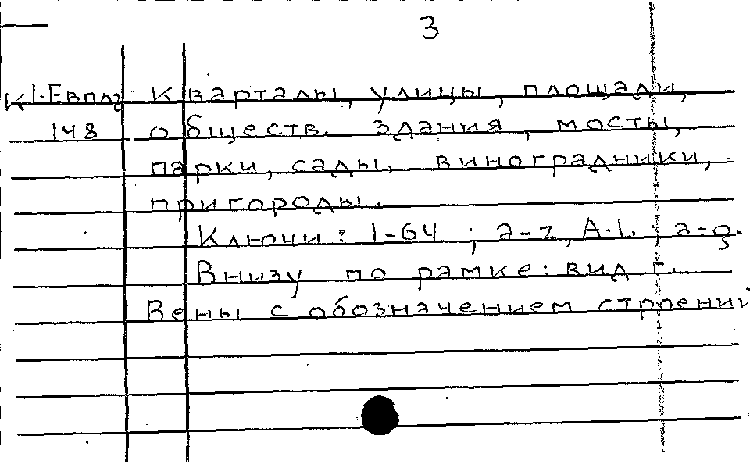 3
К 1-Евплг Кварталы, улицы, площади,
148 обществ. здания, мосты,
парки, сады, виноградники,
пригороды.
Ключи: 1-64; a-z, A-I. α-
Внизу по рамке: вид г.
Вены с обозначением строений